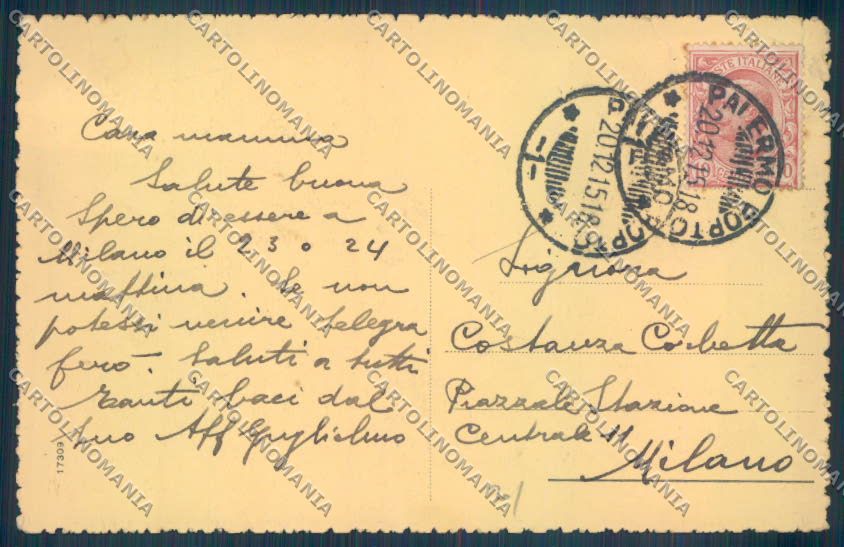 Cara mamma
Salute buona
Spero di essere a
Milano il 23 o 24
mattina. Se non
potessi venire telegra
ferò. Saluti a tutti
Tanti baci dal
suo Aff Guglielmo
17309
POSTE ITALIANE
PALERMO PORTO
20.12.15.18
PALERMO PORTO
20.12.15 18
-1-
Signora
Costanza Corbetta
Piazzale Stazione
Centrale 11
Milano
CARTOLINOMANIA